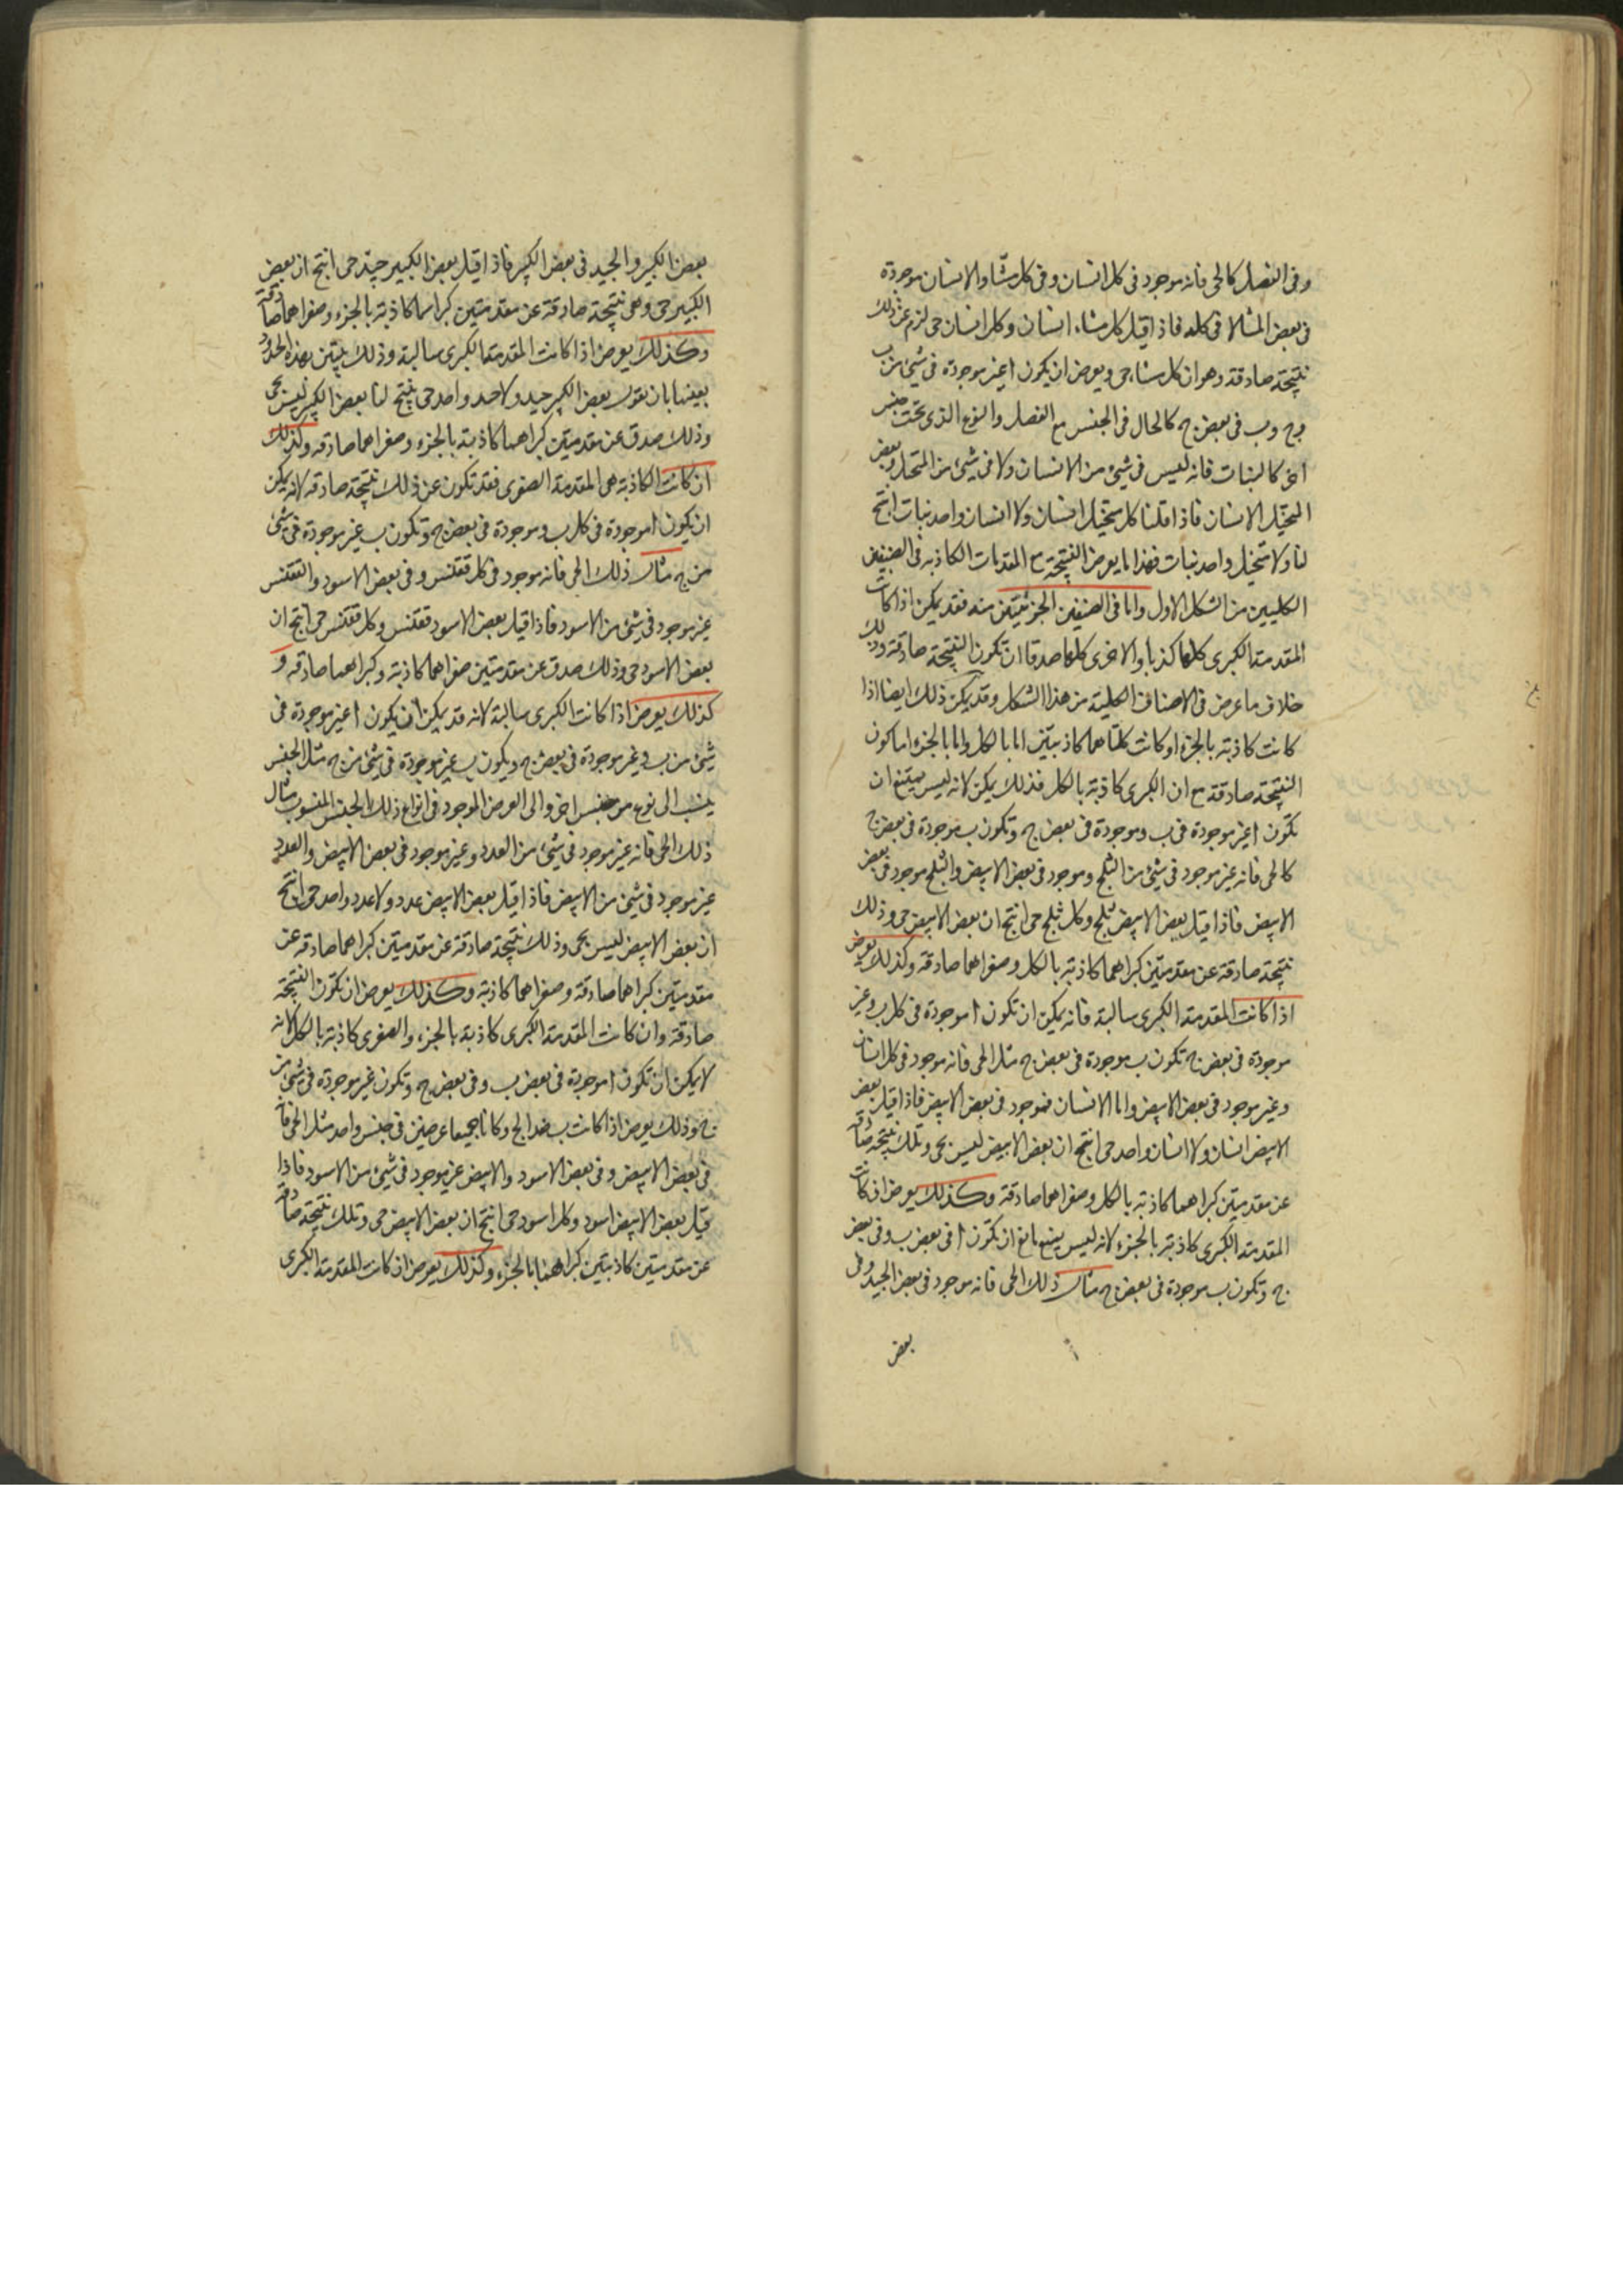 وفى الفصل كالحى فانه موجود فى كل انسان وفى كل مشاء والانسان موجودة
فى بعض المشا لا فى كله فاذا قيل كل مشاء انسان وكل انسان حى لزم عن ذلك
نتيجة صادقة وهو ان كل مشاء حى ويعرض ان يكون ا غير موجودة فى شىء من ب
وج وب فى بعض ج كالحال فى الجنس مع الفصل والنوع الذى تحت جنس
اخر كالنبات فانه ليس فى شىء من الانسان ولا فى شىء من المتخيل وبعض
المتخيل الانسان فاذا قلنا كل متخيل انسان ولا انسان واحد نبات انتج
لنا ولا متخيل واحد نبات فهذا ما يعرض النتيجة مع المقدمات الكاذبة فى الصنفين
الكليين من الشكل الاول واما فى الصنفين الجزئيتين منه فقد يمكن اذا كانت
المقدمة الكبرى كلها كذبا والاخرى كلها صدقا ان تكون النتيجة صادقة وذلك
خلاف ما عرض فى الاصناف الكلية من هذا الشكل وقد يمكن ذلك ايضا اذا
كانت كاذبة بالجزء او كانت كلتاهما كاذبتين اما بالكل واما بالجزء اما كون
النتيجة صادقة مع ان الكبرى كاذبة بالكل فذلك يمكن لانه ليس يمتنع ان
تكون ا غير موجودة فى ب وموجودة فى بعض ج وتكون ب موجودة فى بعض ج
كالحى فانه غير موجود فى شىء من الثلج وموجود فى بعض الابيض والثلج موجود فى بعض
الابيض فاذا قيل بعض الابيض ثلج وكل ثلج حى انتج ان بعض الابيض حى وذلك
نتيجة صادقة عن مقدمتين كبراهما كاذبة بالكل وصغراهما صادقة وكذلك يعرض
اذا كانت المقدمة الكبرى سالبة فانه يمكن ان تكون ا موجودة فى كل ب وغير
موجودة فى بعض ج تكون ب موجودة فى بعض ج مثل الحى فانه موجود فى كل انسان
وغير موجود فى بعض الابيض واما الانسان فموجود فى بعض الابيض فاذا قيل بعض
الابيض انسان ولا انسان واحد حى انتج ان بعض الابيض ليس بحى وتلك نتيجة صادقة
عن مقدمتين كبراهما كاذبة بالكل وصغراهما صادقة وكذلك يعرض ان كانت
المقدمة الكبرى كاذبة بالجزء لانه ليس يمنع مانع ان تكون ا فى بعض ب وفى بعض
ج وتكون ب موجودة فى بعض ج مثال ذلك الحى فانه موجود فى بعض الجيد وفى
بعض
بعض الكبير والجيد فى بعض الكبير فاذا قيل بعض الكبير جيد حى انتج ان بعض
الكبير حى وهى نتيجة صادقة عن مقدمتين كبراهما كاذبة بالجزء وصغراهما صادقة
وكذلك يعرض اذا كانت المقدمة الكبرى سالبة وذلك يتبين بهذه الحدود
بعينها بان نقول بعض الكبير جيد ولا جيد واحد حى ينتج لنا بعض الكبير ليس بحى
وذلك صدق عن مقدمتين كبراهما كاذبة بالجزء وصغراهما صادقة وكذلك
ان كانت الكاذبة هى المقدمة الصغرى فقد تكون عن ذلك نتيجة صادقة لانه يمكن
ان يكون ا موجودة فى كل ب وموجودة فى بعض ج وتكون ب غير موجودة فى شىء
من ج مثال ذلك الحى فانه موجود فى كل ققنس وفى بعض الاسود والققنس
غير موجود فى شىء من الاسود فاذا قيل بعض الاسود ققنس وكل ققنس حى انتج ان
بعض الاسود حى وذلك صدق عن مقدمتين صغراهما كاذبة وكبراهما صادقة و
كذلك يعرض اذا كانت الكبرى سالبة لانه قد يمكن ان يكون ا غير موجودة فى
شىء من ب وغير موجودة فى بعض ج وتكون ب غير موجودة فى شىء من ج مثل الجنس
ينسب الى نوع من جنس اخر والى العرض الموجود فى انواع ذلك الجنس المنسوب مثال
ذلك الحى فانه غير موجود فى شىء من العدد وغير موجود فى بعض الابيض والعدد
غير موجود فى شىء من الابيض فاذا قيل بعض الابيض عدد ولا عدد واحد حى انتج
ان بعض الابيض ليس بحى وذلك نتيجة صادقة عن مقدمتين كبراهما صادقة عن
مقدمتين كبراهما صادقة وصغراهما كاذبة وكذلك يعرض ان تكون النتيجة
صادقة وان كانت المقدمة الكبرى كاذبة بالجزء والصغرى كاذبة بالكل لانه
لا يمكن ان تكون ا موجودة فى بعض ب وفى بعض ج وتكون غير موجودة فى شىء من
ج وذلك يعرض اذا كانت ب ضد الج وكانا جميعا عرضين فى جنس واحد مثل الحى فانه
فى بعض الابيض وفى بعض الاسود والابيض غير موجود فى شىء من الاسود فاذا
قيل بعض الابيض اسود وكل اسود حى انتج ان بعض الابيض حى وتلك نتيجة صادقة
عن مقدمتين كاذبتين كبراهما بالجزء وكذلك يعرض ان كانت المقدمة الكبرى